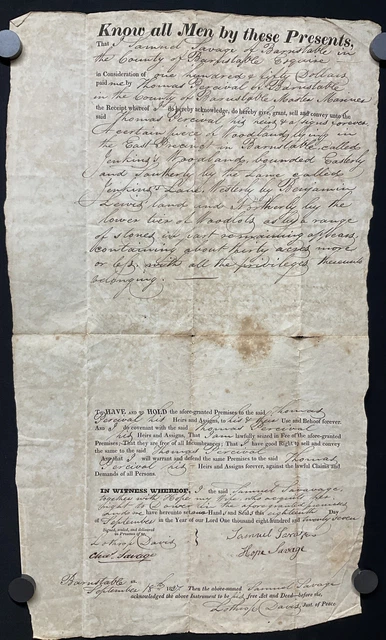 Know all Men by these Presents,
That I Samuel Savage of Barnstable in
the County of Barnstable Esquire
in Consideration of one hundred & fifty Dollars
paid me by Thomas Percival of Barnstable
in the County of Barnstable Master Mariner
the Receipt whereof I do hereby acknowledge, do hereby give, grant, sell and convey unto the
said Thomas Percival his heirs & assigns forever
A certain piece of Woodland, lying in
the East Precinct in Barnstable called
Jenkins's Woodland, bounded Easterly
and Southerly by the Lane called
Jenkins's Lane, Westerly by Benjamin
Lewis, land and Northerly by the
lower tier of Woodlots, as by a range
of stones in part remaining appears,
containing about thirty acres more
or less, with all the privileges thereunto
belonging.
To HAVE and to HOLD the afore-granted Premises to the said Thomas
Percival his Heirs and Assigns, to his & their Use and Behoof forever.
And I do covenant with the said Thomas Percival
his Heirs and Assigns, That I am lawfully seized in Fee of the afore-granted
Premises; That they are free of all Incumbrances; That I have good Right to sell and convey
the same to the said Thomas Percival
And that I will warrant and defend the same Premises to the said Thomas
Percival his Heirs and Assigns forever, against the lawful Claims and
Demands of all Persons
IN WITNESS WHEREOF, I the said Samuel Savage
together with Hope my Wife who
right to Dower in the aforegranted premises
have hereunto set our Hands and Seals this eighteenth
of September in the Year of our Lord One thousand eight hundred and twenty seven
Signed, sealed and delivered
in Presence of us
Lothrop Davis
Savage
Samuel Savage
Hope Savage
Barnstable
September 18th 1827 Then the above-named Samuel Savage
acknowledged the above Instrument to be his free Act and Deed—before me,
Lothrop Davis, Just. of Peace